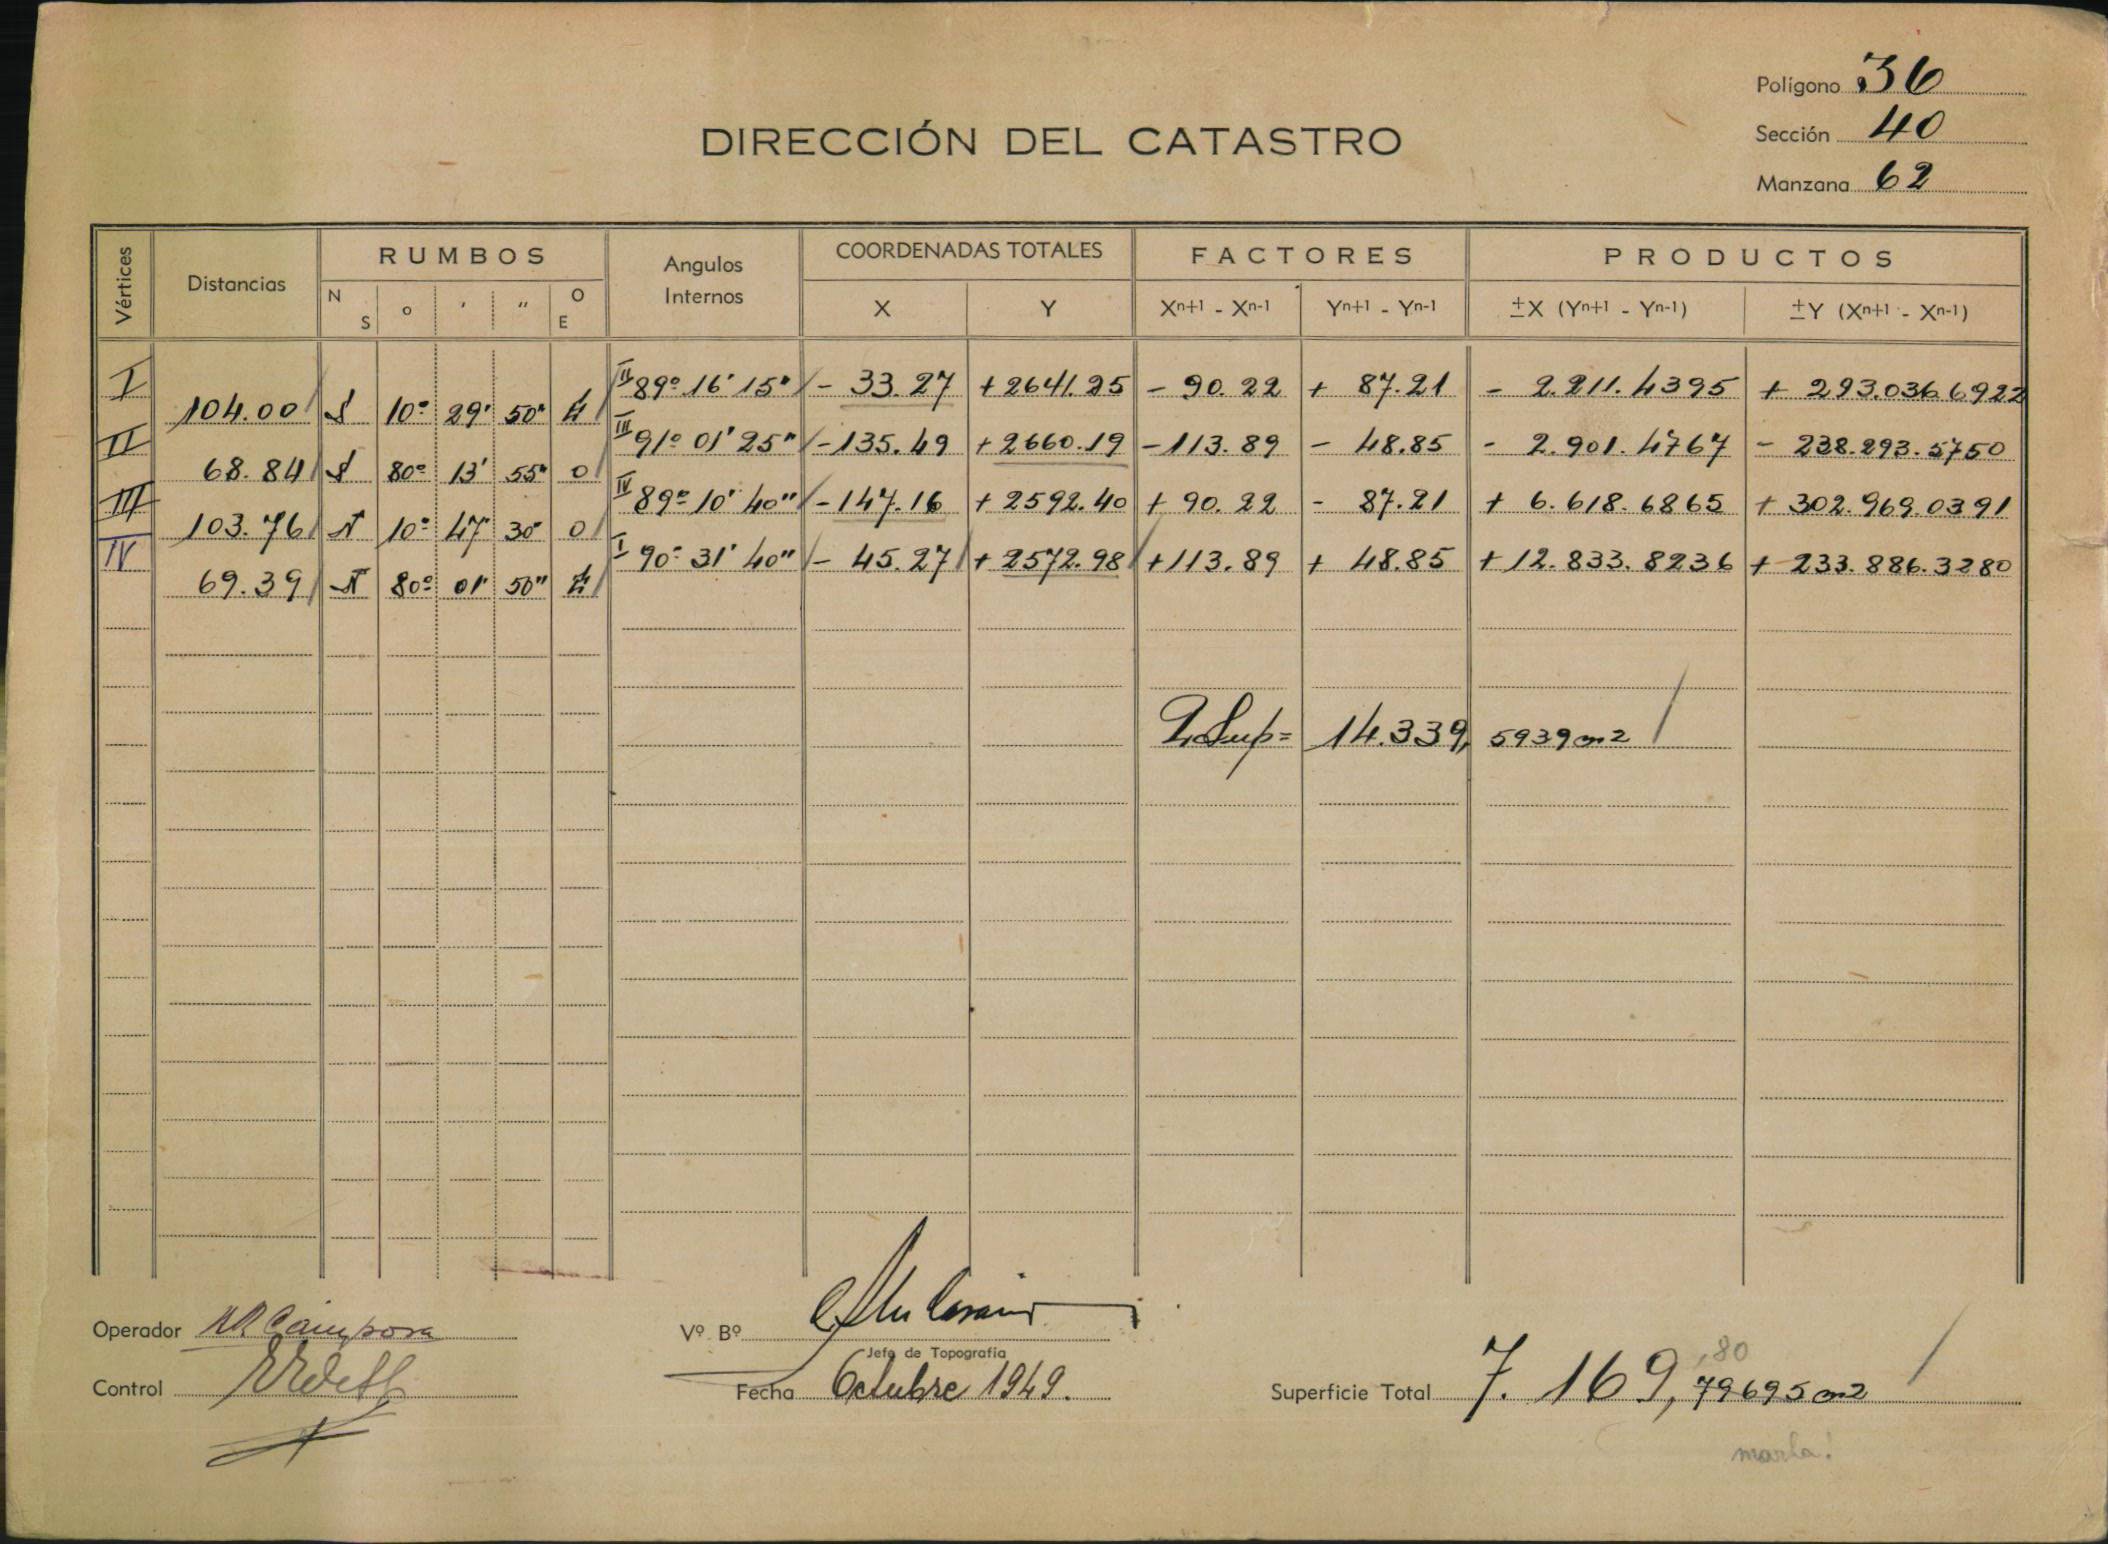 Polígono 36
Sección 40
Manzana 62
DIRECCIÓN DEL CATASTRO
Vértices Distancias RUMBOS Angulos Internos COORDENADAS TOTALES FACTORES PRODUCTOS
N S o ' " O E X Y Xn+1 - Xn-1 Yn+1 - Yn-1 ±X (Yn+1 - Yn-1) ±Y (Xn+1 - Xn-1)
I II 89º 16' 15" - 33.27 + 2641.25 - 90.22 + 87.21 - 2.211.4395 + 293.036.6922
104.00 S 10º 29' 50" E
II III 91º 01' 25" - 135.49 + 2660.19 - 113.89 - 48.85 - 2.901.4767 - 238.293.5750
68.84 S 80º 13' 55" O
III IV 89º 10' 40" - 147.16 + 2592.40 + 90.22 - 87.21 + 6.618.6865 + 302.969.0391
103.76 N 10º 47' 30" O
IV I 90º 31' 40" - 45.27 + 2572.98 + 113.89 + 48.85 + 12.833.8236 + 233.886.3280
69.39 N 80º 01' 50" E
2 Sup = 14.339, 5939 m2
Operador
Vº Bº
Jefe de Topografía
Control
Fecha Octubre 1949.
Superficie Total 7.169,79695 m2
,80